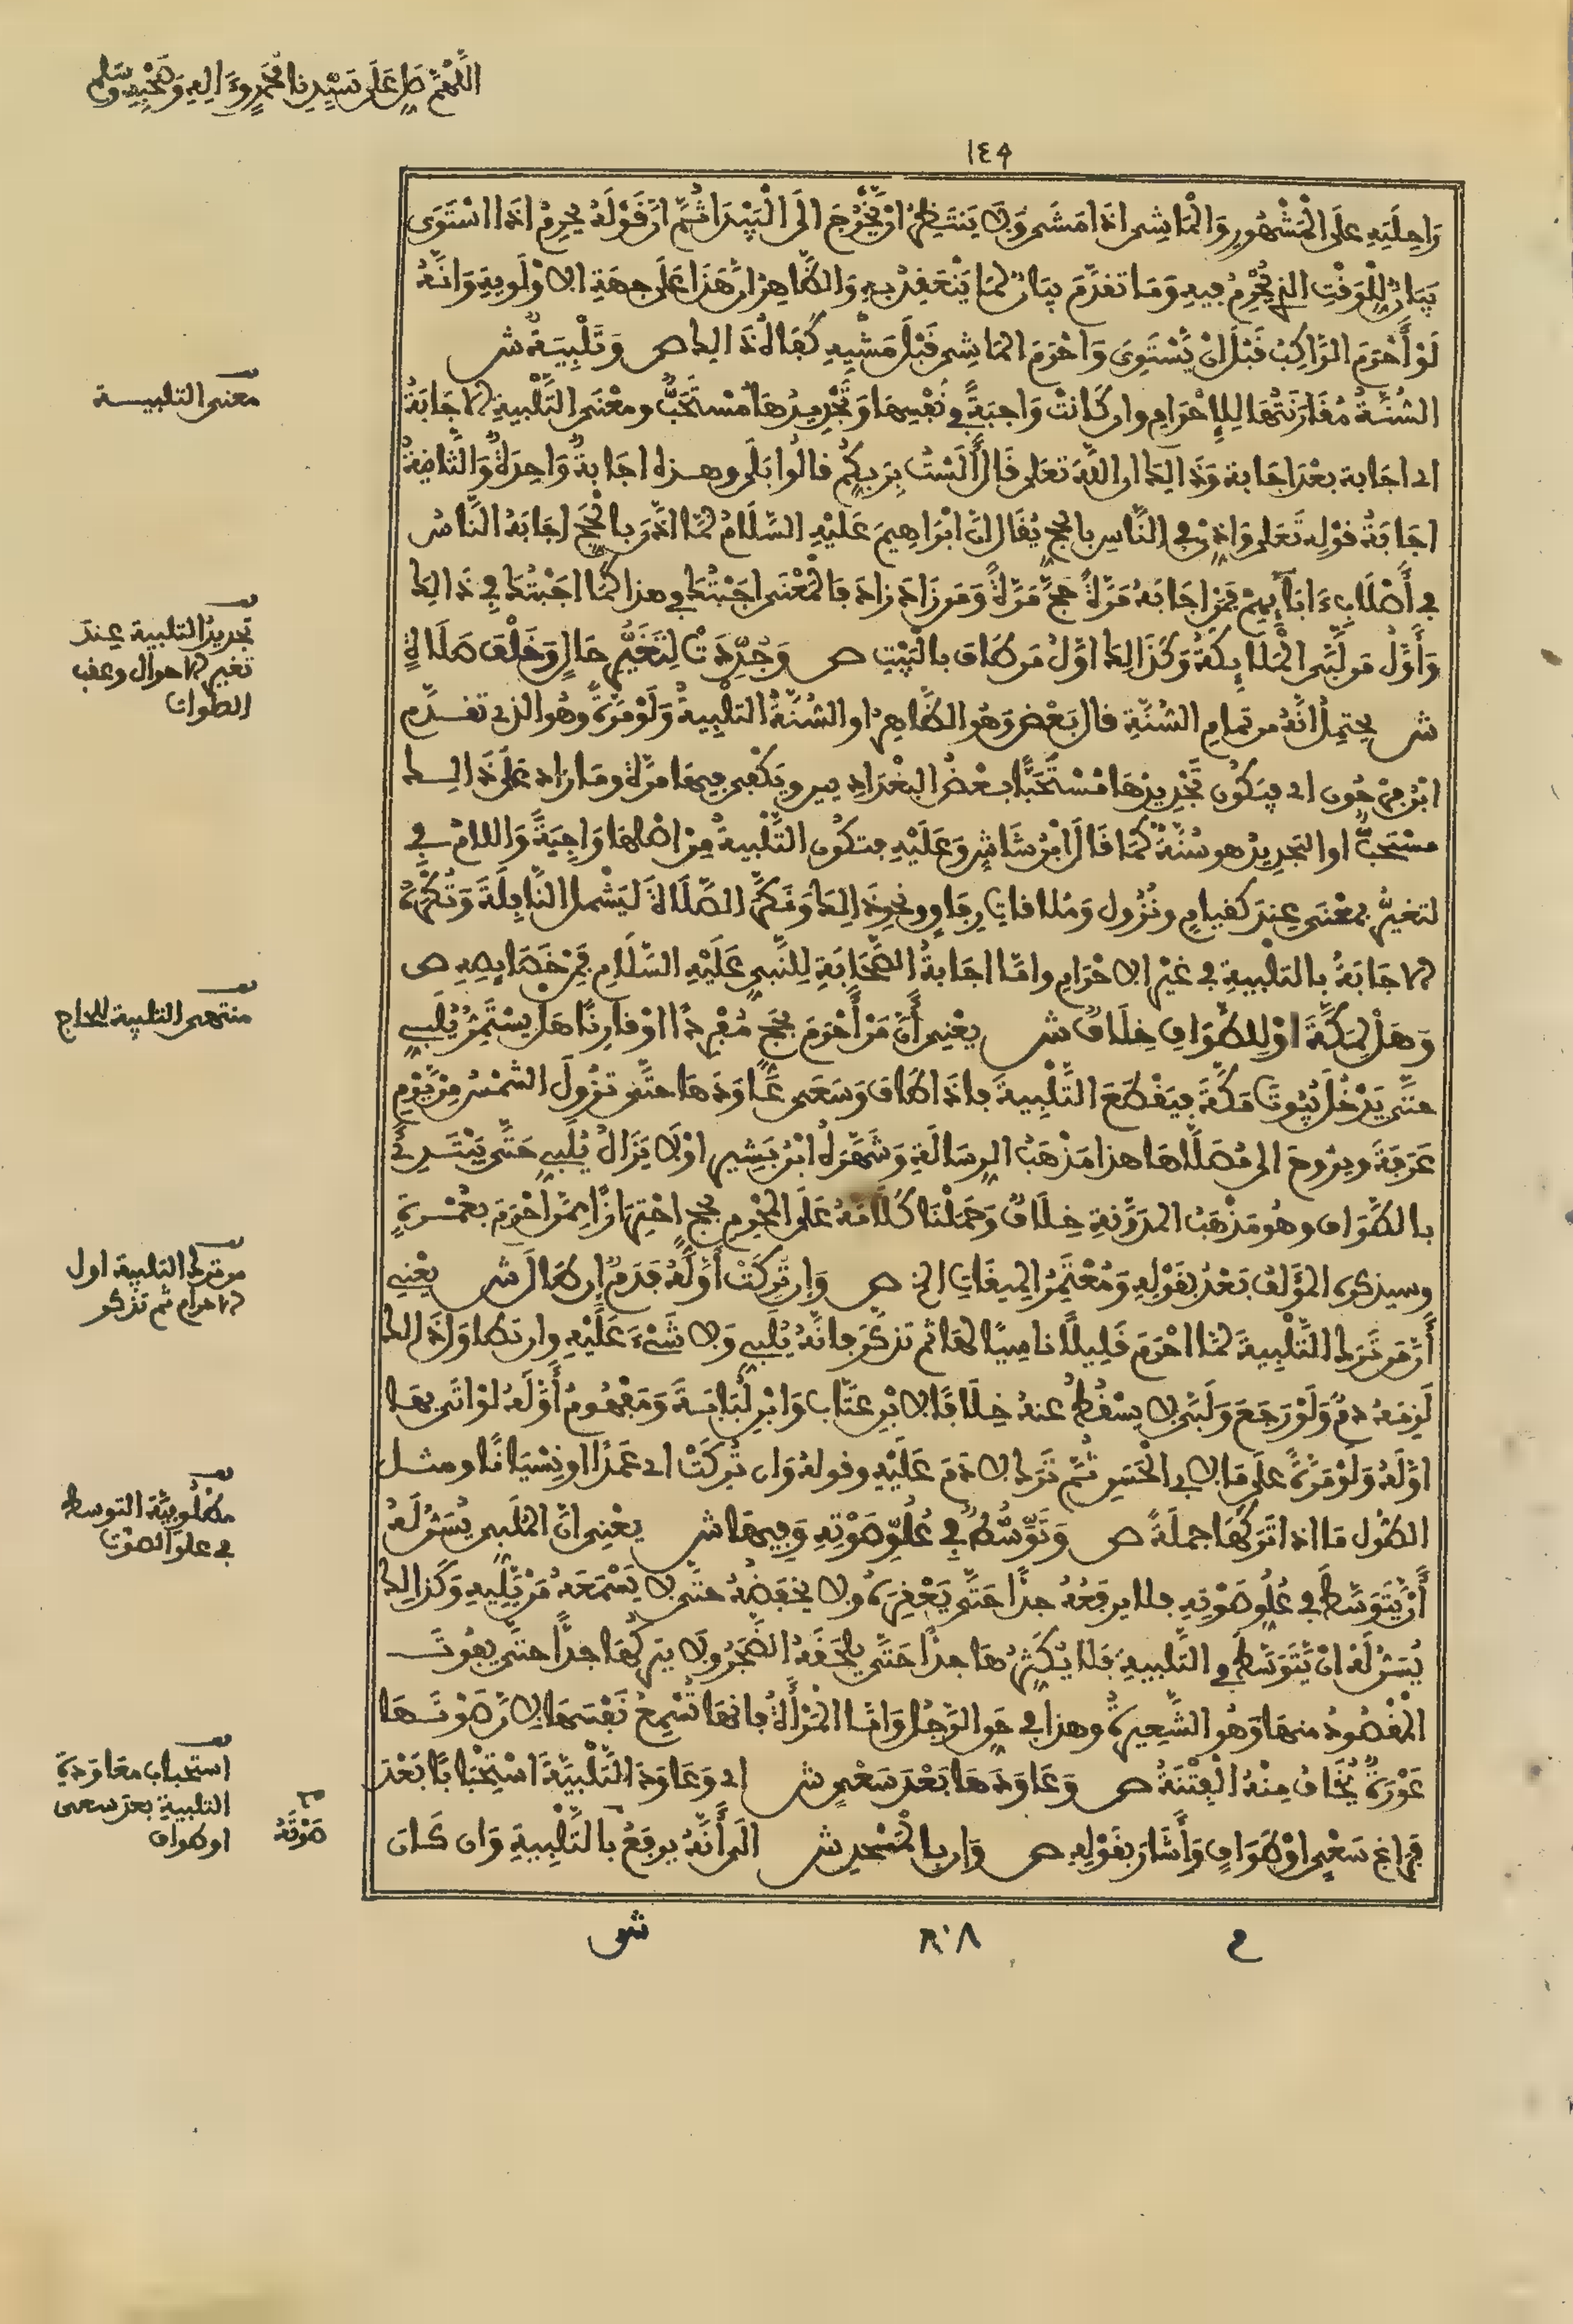 اللهم صل على سيدنا محمد وءاله وصحبه وسلم
١٤٩
راحلته على المشهور والماشى اذا مشى ولا ينتظر ان يخرج الى البيدا ثم ان قوله يحرم اذا استوى
بيان للوقت الذي يحرم فيه وما تقدم بيان لما ينعقد به والظاهر ان هذا على جهة الاولوية وانه
لو أحرم الراكب قبل ان يستوى واحرم الماشى قبل مشيه كفاه ذالك ص وتلبية ش
السنة مقارنتها للإحرام وان كانت واجبة في نفسها وتجديدها مستحب ومعنى التلبية الاجابة
اى اجابة بعد اجابة وذالك ان الله تعلى قال ألست بربكم قالوا بلى وهذه اجابة واحدة والثانية
اجابة قوله تعلى واذن في الناس بالحج يقال ان ابراهيم عليه السلام لما اذن بالحج اجابه الناس
في أصلاب ءابائهم فمن اجابه مرة حج مرة ومن زاد زاد فالمعنى اجبتك في هذا كما اجبتك في ذالك
وأول من لبى الملائكة وكذالك اول من طاف بالبيت ص وجددت لتغير حال وخلف صلاة
ش يحتمل انه من تمام السنة قال بعض وهو الظاهر او السنة التلبية ولو مرة وهو الذى تقدم
ابن فرحون اى فيكون تجديدها مستحبا بعض البغداديين ويكفى فيها مرة وما زاد على ذالك
مستحب او التجديد هو سنة كما قال ابن شاش وعليه فتكون التلبية من اصلها واجبة واللام في
لتغير بمعنى عند كقيام ونزول وملاقات رفاق ونحو ذالك ونكر الصلاة ليشمل النافلة وتكره
الاجابة بالتلبية في غير الاحرام واما اجابة الصحابة للنبي عليه السلام فمن خصائصه ص
وهل لمكة او للطواف خلاف ش يعنى أن من أحرم بحج مفردا او قارنا هل يستمر يلبي
حتى يدخل بيوت مكة فيقطع التلبية فاذا طاف وسعى عاودها حتى تزول الشمس من يوم
عرفة ويروح الى مصلاها هذا مذهب الرسالة وشهره ابن بشير او لا يزال يلبي حتى يبتدئ
بالطواف وهو مذهب المدونة خلاف وحملنا كلامه على المحرم بحج احترازا ممن احرم بعمرة
وسيذكره المؤلف بعد بقوله ومعتمر الميقات الخ ص وإن تركت أوله فدم إن طال ش يعني
أن من ترك التلبية لما احرم قليلا ناسيا لها ثم تذكر فانه يلبي ولا شيء عليه وان تطاول ذالك
لزمه دم ولو رجع ولبى لا يسقط عنه خلافا لابن عتاب وابن لبابة ومفهوم أوله لو اتى بها
اوله ولو مرة على ما لابى الحسن ثم ترك لا دم عليه وقوله وان تركت اى عمدا او نسيانا ومثل
الطول ما اذا تركها جملة ص وتوسط في علو صوته وفيها ش يعنى ان الملبي يسن له
أن يتوسط في علو صوته فلا يرفعه جدا حتى يعقره ولا يخفضه حتى لا يسمعه من يليه وكذالك
يسن له ان يتوسط في التلبية فلا يكثرها جدا حتى يلحقه الضجر ولا يتركها جدا حتى يفوت
المقصود منها وهو الشعيرة وهذا في حق الرجل واما المرأة فانها تسمع نفسها لان صوتها
عورة يخاف منه الفتنة ص وعاودها بعد سعي ش اى وعاود التلبية استحبابا بعد
فراغ سعي او طواف وأشار بقوله ص وإن بالمسجد ش الى أنه يرفع بالتلبية وان كان
معنى التلبية
تجديد التلبية عند
تغير الاحوال وعقب
الطواف
منتهى التلبية للحاج
من ترك التلبية اول
الاحرام ثم تذكر
مطلوبية التوسط
في علو الصوت
استحباب معاودة
التلبية بعد سعي
او طواف
صوته
ش